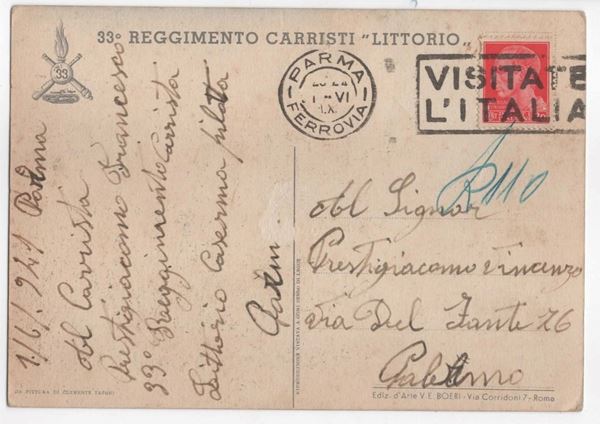 33° REGGIMENTO CARRISTI "LITTORIO"
33
PARMA
FERROVIA
20-21
1-VI
IX.
VISITATE
L'ITALIA
1/6/941 Parma
Al Carrista
Prestigiacomo Francesco
33° Reggimento Carrista
Littorio Caserma pilotta
Parm
Al Signor
Prestigiacomo Vincenzo
via Del Fante 26
Palermo
DA PITTURA DI CLEMENTE TAFURI
Ediz. d'Arte V. E. BOERI - Via Corridoni 7 - Roma